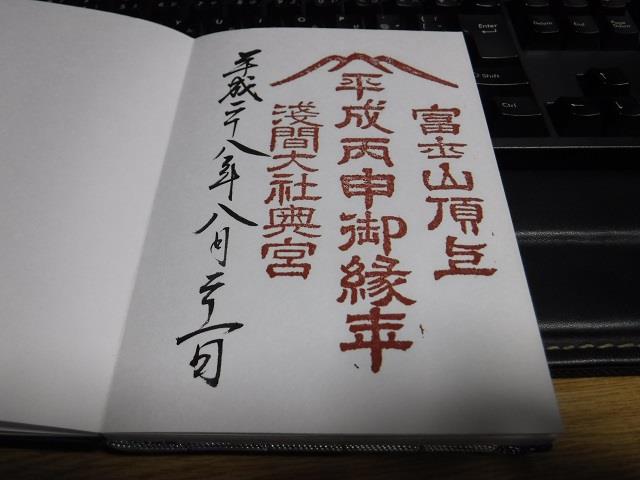 富士山頂上
平成丙申御縁年
淺間大社奥宮
平成二十八年八月二十一日
Enter
Shift
Ctrl
Delete
End